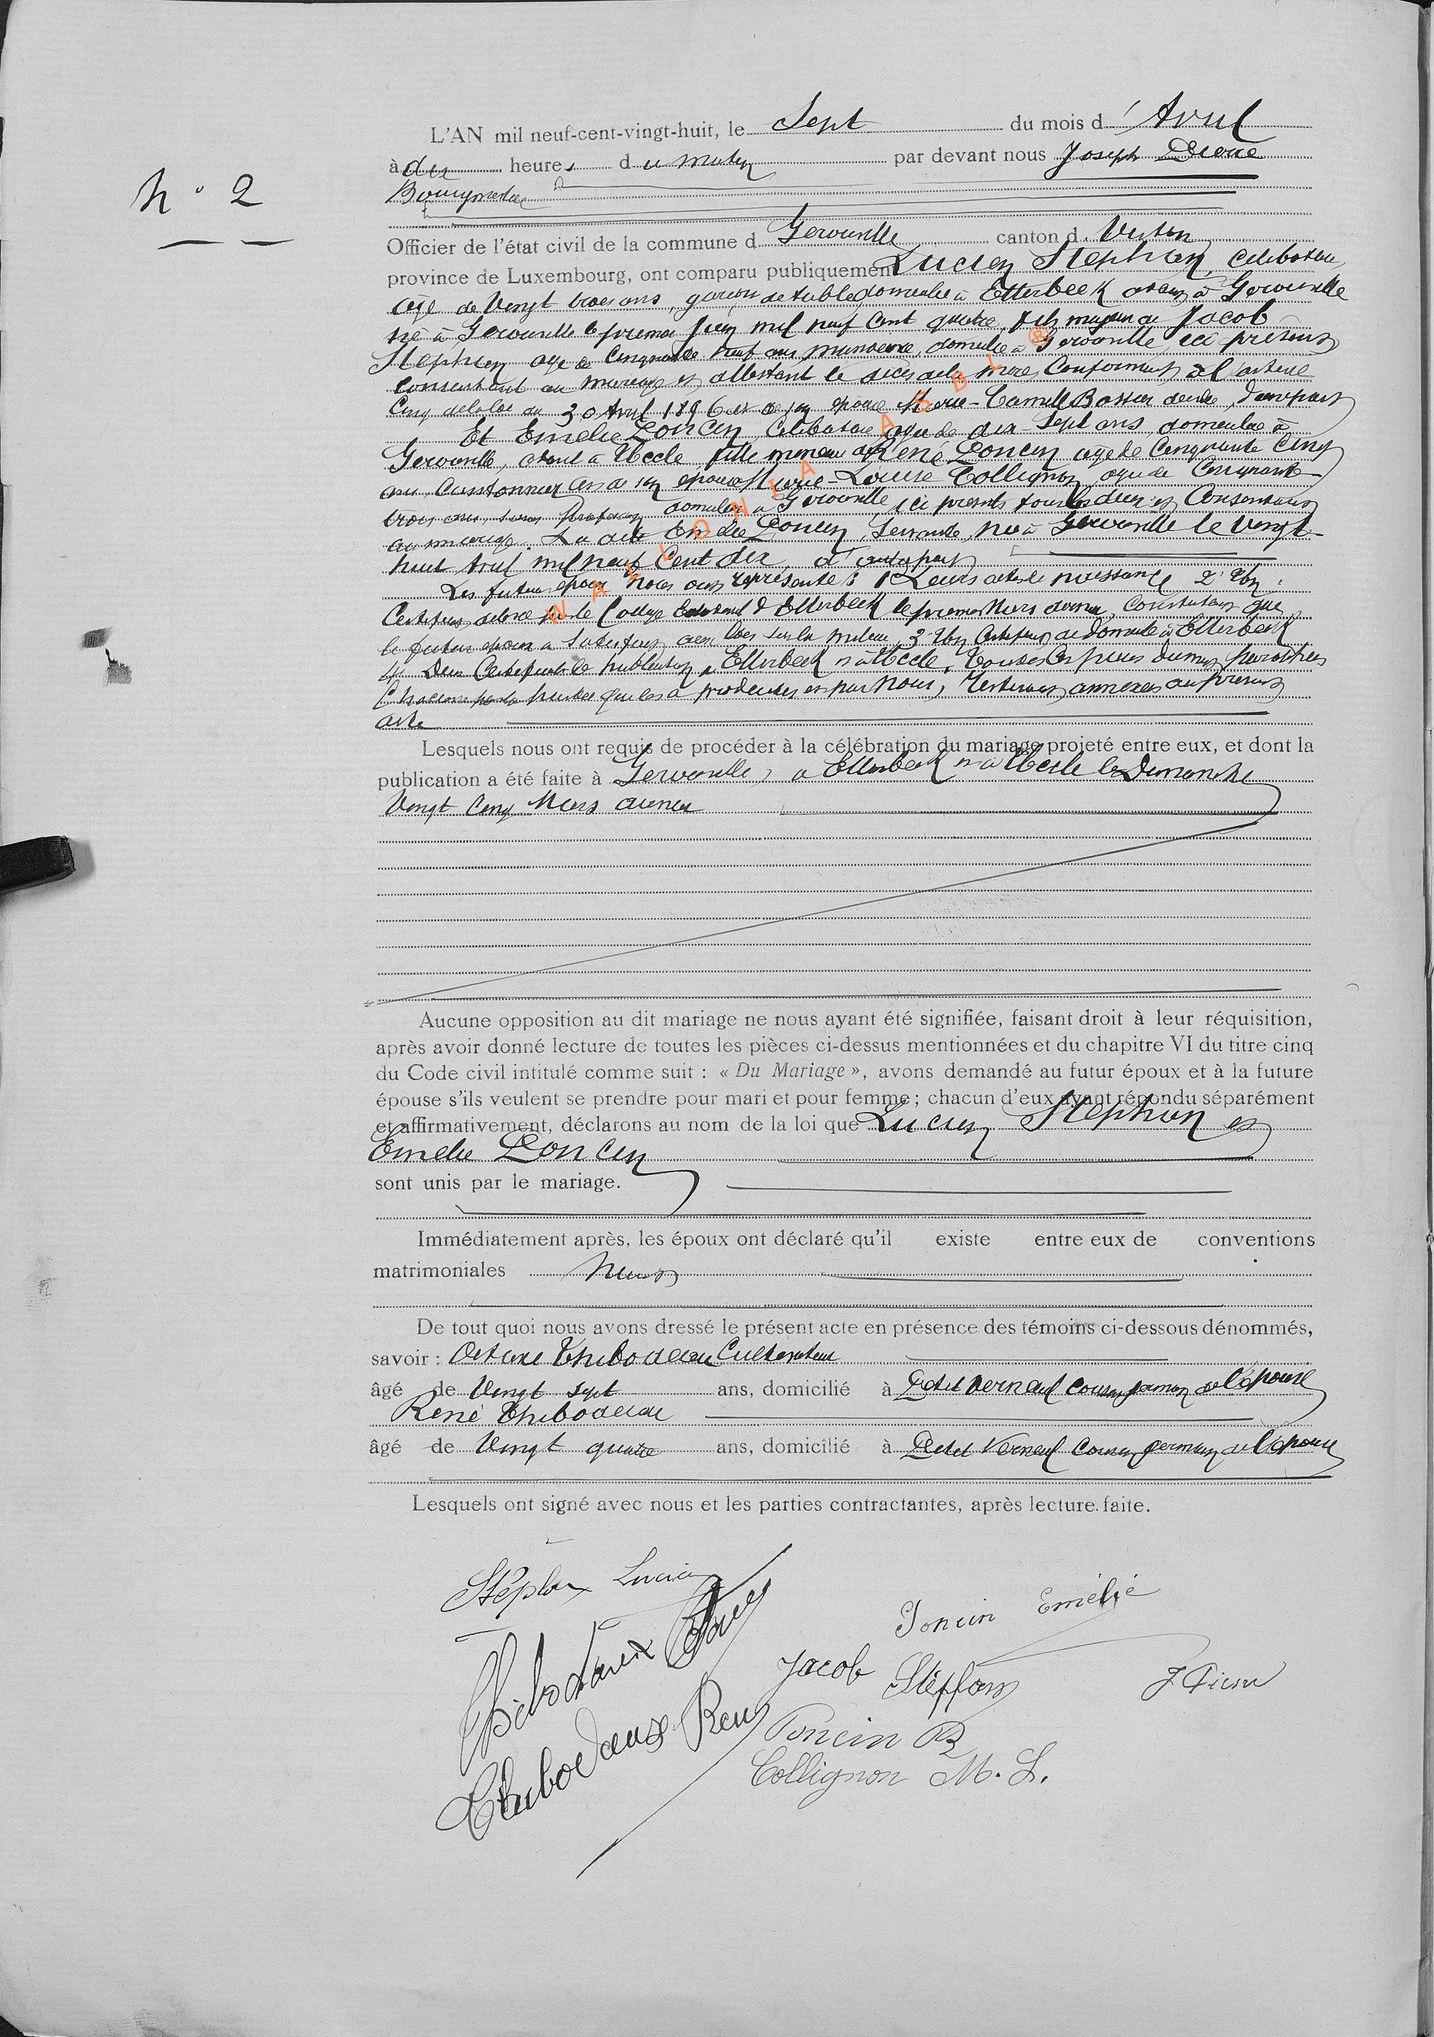 N° 2
L'AN mil neuf-cent-vingt-huit, le Sept du mois d'Avril
à dix heures du matin par devant nous Joseph
Bourgmestre
Officier de l'état civil de la commune d Gérouville canton d Virton
province de Luxembourg, ont comparu publiquement Lucien Stephan, célibataire
âgé de vingt trois ans, garçon de table domicilié à Etterbeek avant à Gérouville
né à Gérouville le premier juin mil neuf cent quatre, fils majeur de Jacob
Stephan âgé de cinquante neuf ans, domicilié à Gérouville ici présent
consentant au mariage et attestant le décès de la mère conformément à l'article
cinq de la loi du 30 Avril 1896 et de son épouse Marie-Camille décédée, d'une part
Et Emélie Poncin célibataire âgée de dix-sept ans domiciliée à
Gérouville, avant à Uccle fille mineure de René Poncin âgé de cinquante cinq
ans, cantonnier et de son épouse Marie-Louise Collignon âgée de cinquante
trois ans, sans profession domiciliés à Gérouville, ici présents tous les deux et consentant
au mariage. La dite Emélie Poncin, servante, née à Gérouville le vingt
huit Avril mil neuf cent dix, d'autre part
Les futurs époux nous ont représenté : 1° Leurs actes de naissance 2° Un
certificat délivré par le Collège Echevinal d'Etterbeek le premier Mars dernier, constatant que
le futur époux a satisfait aux lois sur la milice, 3° Un certificat de domicile à Etterbeek
4° Deux certificats de publication à Etterbeek et à Uccle. Toutes ces pièces dûment paraphées
chacune par la partie qui les a produites et par Nous, resteront annexées au présent
acte
Lesquels nous ont requis de procéder à la célébration du mariage projeté entre eux, et dont la
publication a été faite à Gérouville, à Etterbeek et à Uccle le Dimanche
Vingt cinq Mars dernier
Aucune opposition au dit mariage ne nous ayant été signifiée, faisant droit à leur réquisition,
après avoir donné lecture de toutes les pièces ci-dessus mentionnées et du chapitre VI du titre cinq
du Code civil intitulé comme suit : « Du Mariage », avons demandé au futur époux et à la future
épouse s'ils veulent se prendre pour mari et pour femme ; chacun d'eux ayant répondu séparément
et affirmativement, déclarons au nom de la loi que Lucien Stephan et
Emélie Poncin
sont unis par le mariage.
Immédiatement après, les époux ont déclaré qu'il existe entre eux de conventions
matrimoniales
De tout quoi nous avons dressé le présent acte en présence des témoins ci-dessous dénommés,
savoir : Octave Thibodeau Cultivateur
âgé de Vingt sept ans, domicilié à Petit Verneuil cousin germain de l'épouse
René Thibodeau
âgé de Vingt quatre ans, domicilié à Petit Verneuil cousin germain de l'épouse
Lesquels ont signé avec nous et les parties contractantes, après lecture faite.
Stéphan Lucien
Poncin Emélie
Thibodaux
Jacob Stéffan
Thibodaux René
Poncin R
Collignon M. L.
WALLONIA ASBL ®